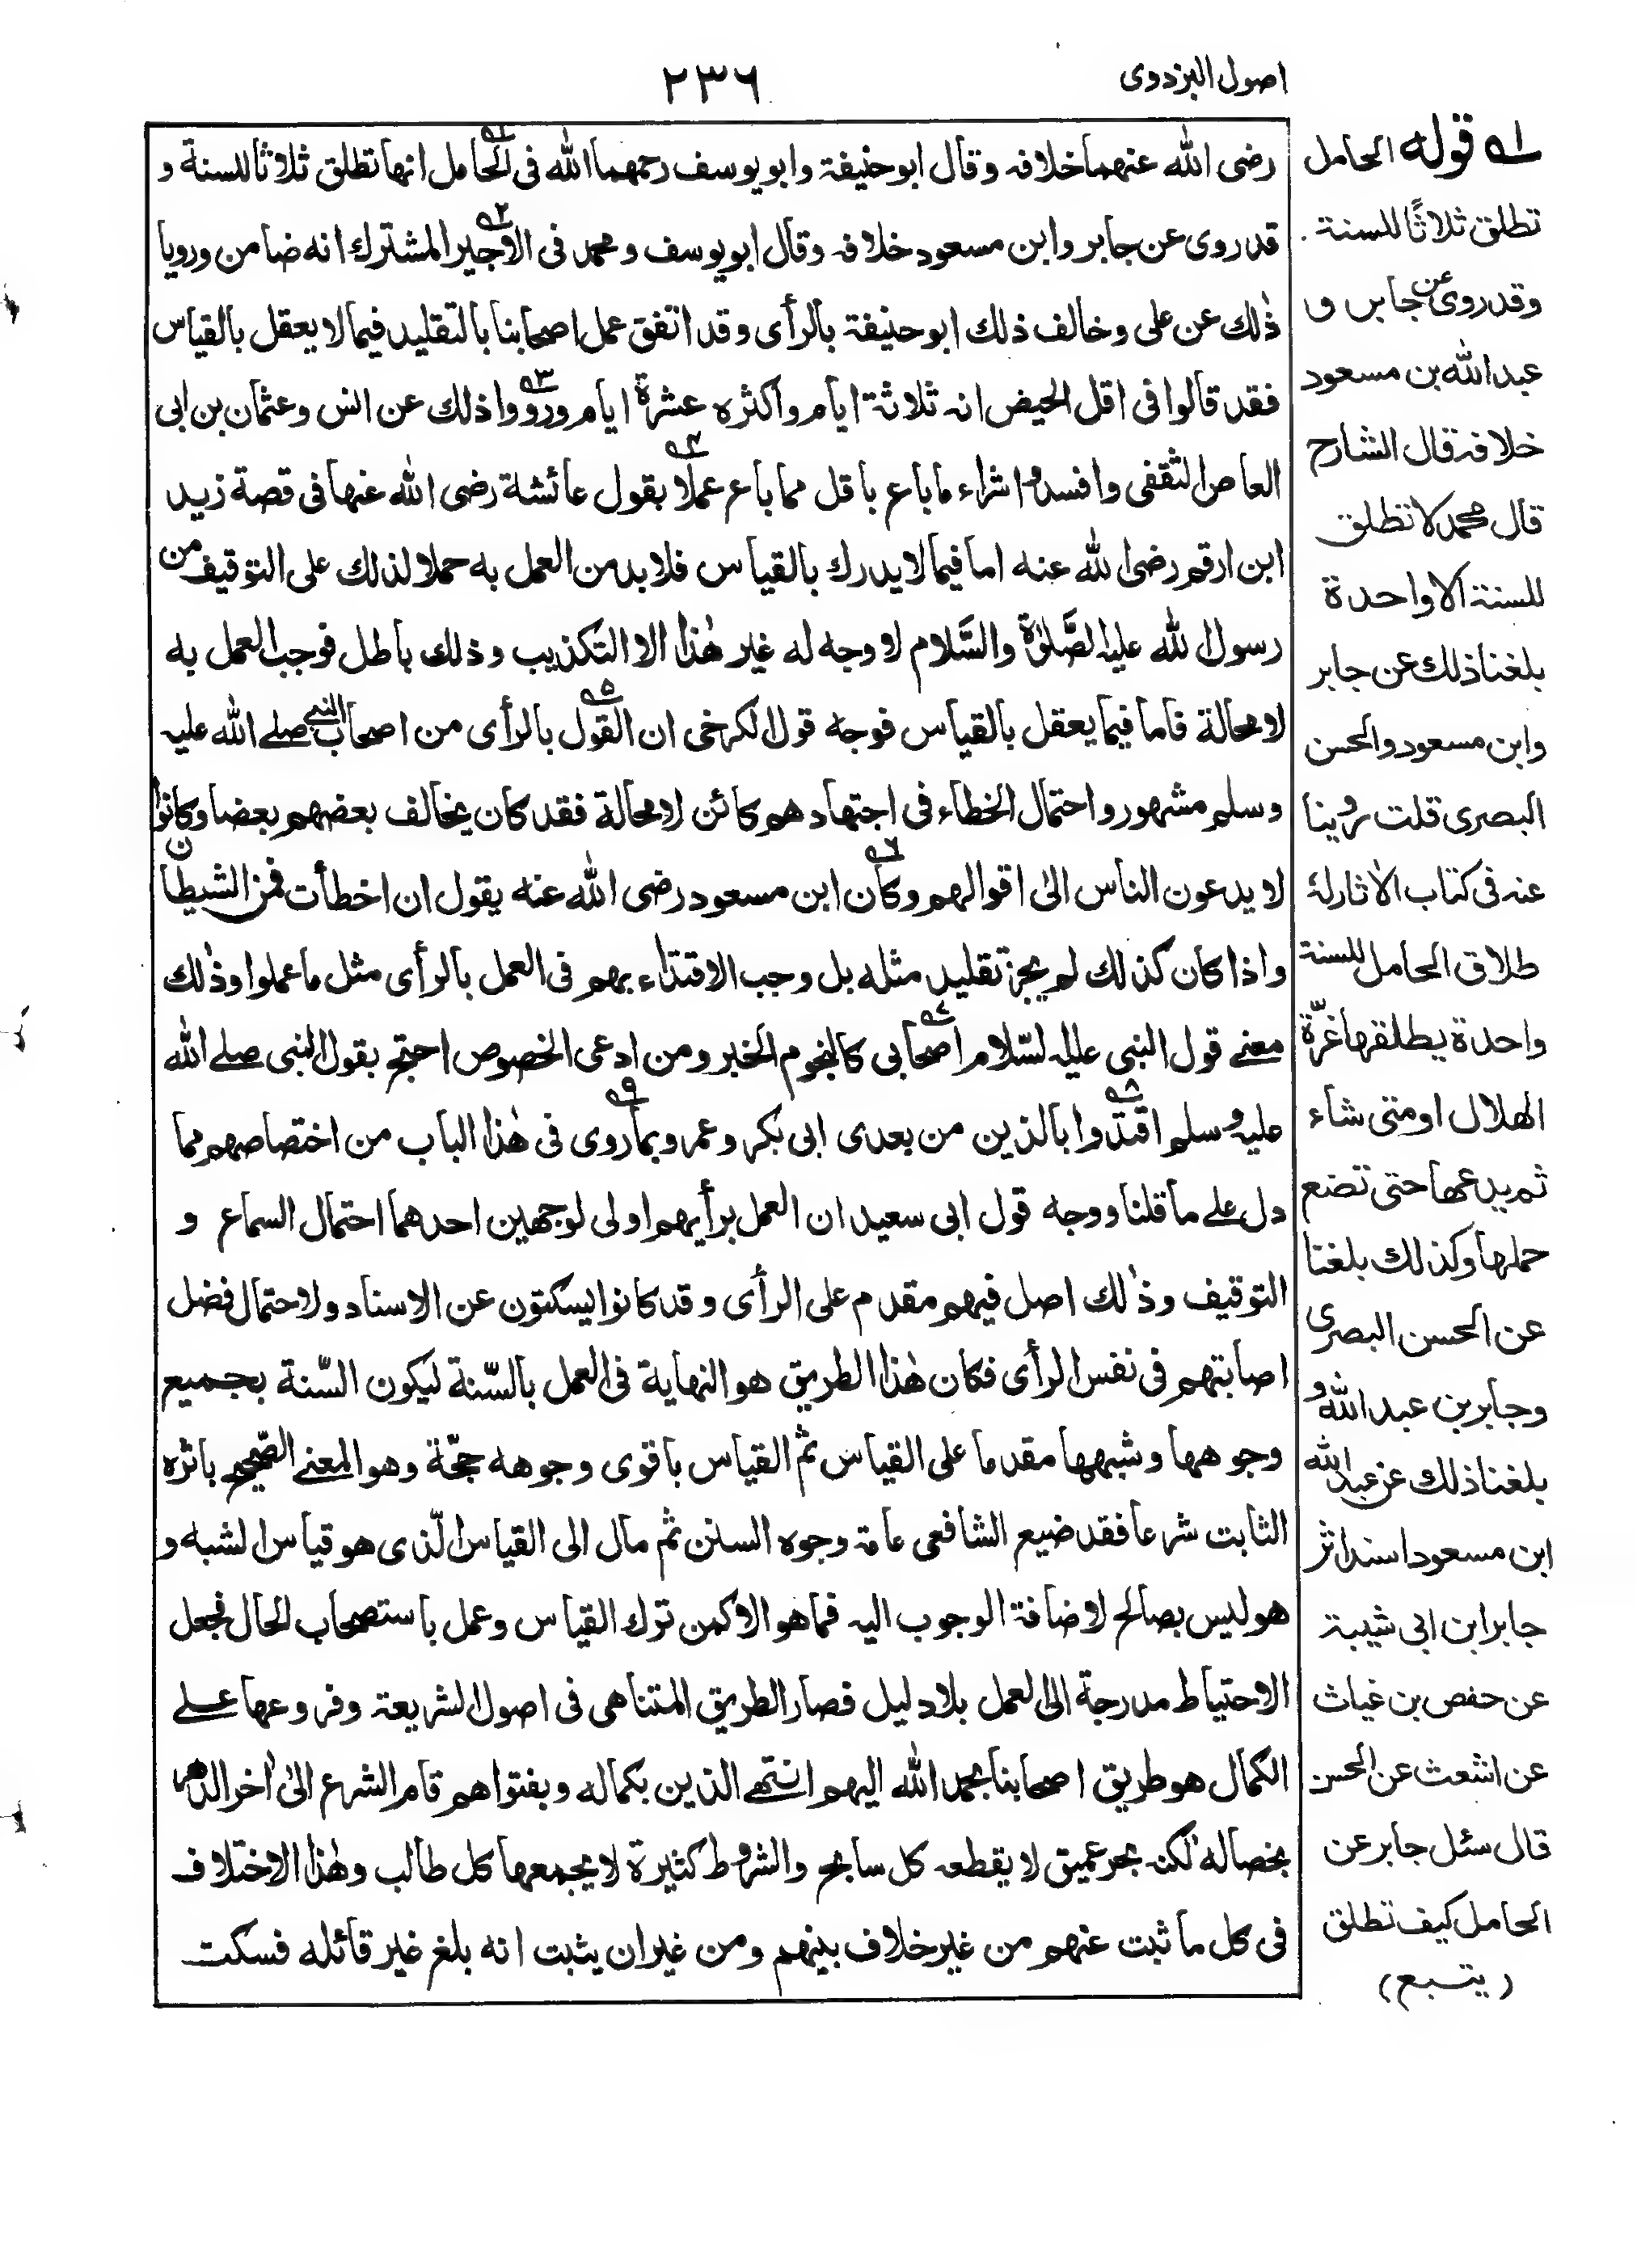 اصول البزدوى
٢٣٦
رضى الله عنهما خلافه وقال ابو حنيفة وابو يوسف رحمهما الله فى الحامل١ انها تطلق ثلاثا للسنة و
قد روى عن جابر وابن مسعود خلافه وقال ابو يوسف ومحمد فى الاجير٢ المشترك انه ضامن ورويا
ذٰلك عن على وخالف ذلك ابو حنيفة بالرأى وقد اتفق عمل اصحابنا بالتقليد فيما لا يعقل بالقياس
فقد قالوا فى اقل الحيض انه ثلاثة ايام واكثره عشرة ايام ورووا٣ ذلك عن انس وعثمان بن ابى
العاص الثقفى وافسدوا شراء ما باع باقل مما باع٤ عملا بقول عائشة رضى الله عنها فى قصة زيد
ابن ارقم رضى الله عنه اما فيما لا يدرك بالقياس فلا بد من العمل به حملا لذلك على التوقيف من
رسول الله عليه الصَّلوٰة والسَّلام لا وجه له غير هٰذا الا التكذيب وذلك باطل فوجب العمل به
لا محالة فاما فيما يعقل بالقياس فوجه قول الكرخى ان القول٥ بالرأى من اصحاب النبى صلے الله عليه
وسلم مشهور واحتمال الخطاء فى اجتهادهم كائن لا محالة فقد كان يخالف بعضهم بعضا وكانوا
لا يدعون الناس الىٰ اقوالهم وكان٦ ابن مسعود رضى الله عنه يقول ان اخطأت فمن الشيطان
واذا كان كذلك لم يجز تقليد مثله بل وجب الاقتداء بهم فى العمل بالرأى مثل ما عملوا وذٰلك
معنے قول النبى عليه السّلام اصحابى٧ كالنجوم الخبر ومن ادعى الخصوص احتج بقول النبى صلے الله
عليه وسلم اقتدوا٨ بالذين من بعدى ابى بكر وعمر وبما روى٩ فى هٰذا الباب من اختصاصهم مما
دل علے ما قلنا ووجه قول ابى سعيد ان العمل برأيهم اولى لوجهين احدهما احتمال السماع و
التوقيف وذٰلك اصل فيهم مقدم على الرأى وقد كانوا يسكتون عن الاسناد ولاحتمال فضل
اصابتهم فى نفس الرأى فكان هٰذا الطريق هو النهاية فى العمل بالسّنة ليكون السّنة بجميع
وجوهها وشبهها مقدما على القياس ثم القياس باقوى وجوهه حجّة وهو المعنے الصّحيح باثره
الثابت شرعا فقد ضيع الشافعى عامة وجوه السنن ثم مال الى القياس الّذى هو قياس الشبه و
هو ليس بصالح لاضافة الوجوب اليه فما هو الا كمن ترك القياس وعمل باستصحاب الحال فجعل
الاحتياط مدرجة الى العمل بلا دليل فصار الطريق المتناهى فى اصول الشريعة وفروعها علے
الكمال هو طريق اصحابنا بحمد الله اليهم انتهے الدين بكماله وبفتواهم قام الشرع الىٰ اٰخر الدهر
بخصاله لٰكنه بحر عميق لا يقطعه كل سابح والشروط كثيرة لا يجمعها كل طالب وهٰذا الاختلاف
فى كل ما ثبت عنهم من غير خلاف بينهم ومن غير ان يثبت انه بلغ غير قائله فسكت
١ قوله الحامل
تطلق ثلاثًا للسنة
وقد روى عن جابر و
عبد الله بن مسعود
خلافه قال الشارح
قال محمد لا تطلق
للسنة الا واحدة
بلغنا ذلك عن جابر
وابن مسعود والحسن
البصرى قلت روينا
عنه فى كتاب الاٰثار له
طلاق الحامل للسنة
واحدة يطلقها غرّة
الهلال او متى شاء
ثم يدعها حتى تضع
حملها وكذلك بلغنا
عن الحسن البصرى
وجابر بن عبد الله و
بلغنا ذلك عن عبد الله
ابن مسعود اسند اثر
جابر ابن ابى شيبة
عن حفص بن غياث
عن اشعث عن الحسن
قال سئل جابر عن
الحامل كيف تطلق
(يتبع)